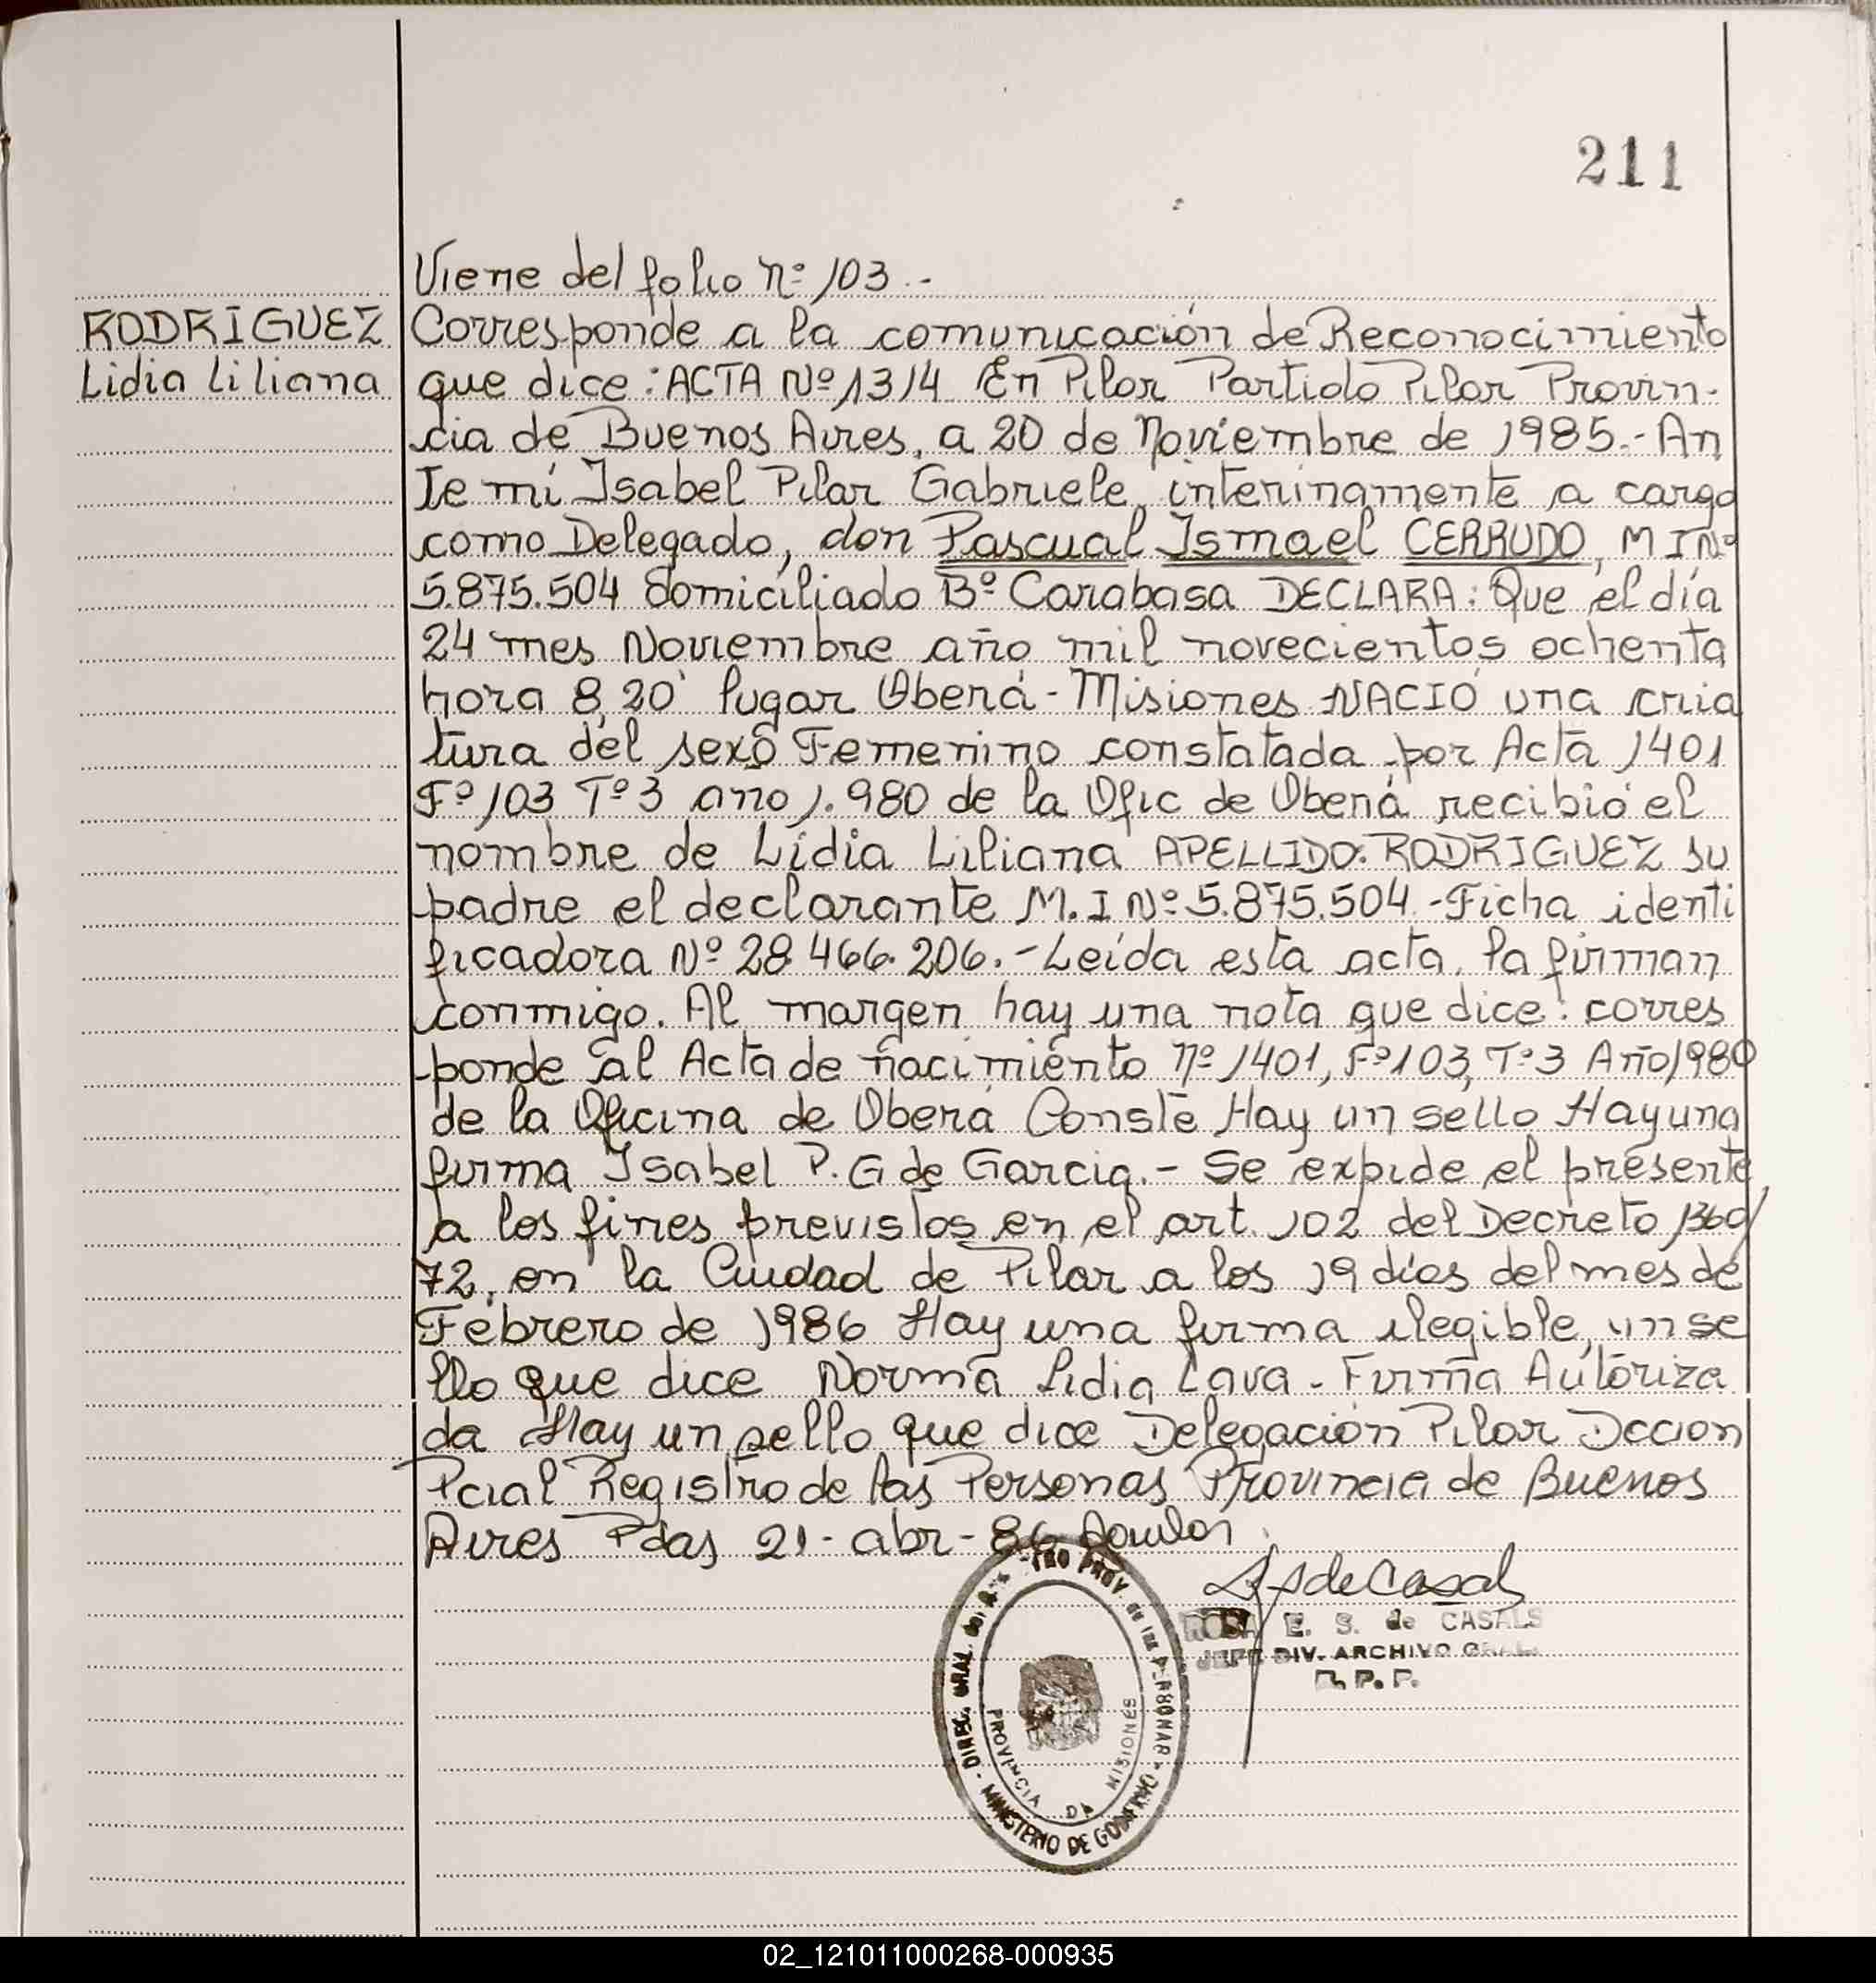 211
Viene del folio Nº 103.-
RODRIGUEZ
Lidia Liliana
Corresponde a la comunicación de Reconocimiento
que dice: ACTA Nº 1314 En Pilar Partido Pilar Provin-
cia de Buenos Aires, a 20 de Noviembre de 1985.- An
te mí Isabel Pilar Gabriele, interinamente a cargo
como Delegado, don Pascual Ismael CERRUDO, M I Nº
5.875.504 domiciliado Bº Carabasa DECLARA: Que el día
24 mes Noviembre año mil novecientos ochenta
hora 8,20' lugar Oberá - Misiones NACIÓ una cria
tura del sexo Femenino constatada por Acta 1401
Fº 103 Tº 3 año 1.980 de la Ofic de Oberá recibió el
nombre de Lidia Liliana APELLIDO: RODRIGUEZ su
padre el declarante M. I Nº 5.875.504.-Ficha identi
ficadora Nº 28.466.206.- Leída esta acta, la firman
conmigo. Al margen hay una nota que dice: corres
ponde al Acta de nacimiento Nº 1401, Fº 103, Tº 3 Año 1980
de la Oficina de Oberá Conste Hay un sello Hay una
firma Isabel P. G de Garcia.- Se expide el presente
a los fines previstos en el art. 102 del Decreto 1360/
72, en la Ciudad de Pilar a los 19 días del mes de
Febrero de 1986 Hay una firma ilegible, un se
llo que dice Norma Lidia Cava - Firma Autoriza
da Hay un sello que dice Delegación Pilar Dccion
Pcial Registro de las Personas Provincia de Buenos
Aires Pdas 21 - abr - 86
de Casals
ROSA E. S. de CASALS
JEFE DIV. ARCHIVO GRAL.
R. P. P.
PROVINCIA DE MISIONES
MINISTERIO DE GOBIERNO
02_121011000268-000935